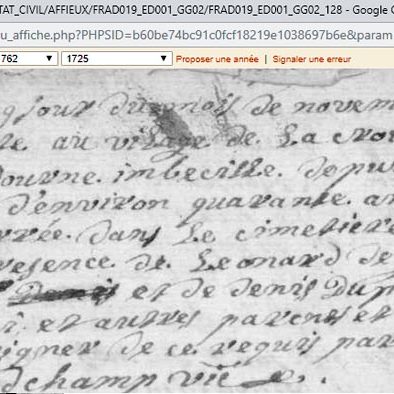 TAT_CIVIL/AFFIEUX/FRAD019_ED001_GG02/FRAD019_ED001_GG02_128 - Google C
u_affiche.php?PHPSID=b60be74bc91c0fcf18219e1038697b6e&param
762 1725 Proposer une année | Signaler une erreur
9 jour du mois de novem
re au village de La croi
ourne imbecille depu
d'environ quarante an
rrée dans Le cimetiere
resence de Leonard de
et de denis Dup
et autres parents et
igner de ce requis par
dchamp vic